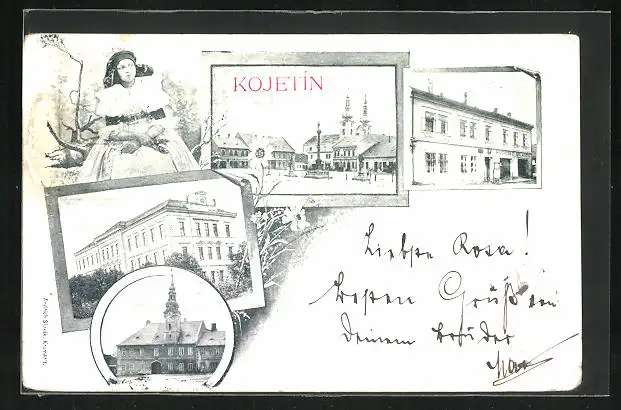 KOJETÍN
Liebste Rosa!
besten Gruß von
Deinem Bruder